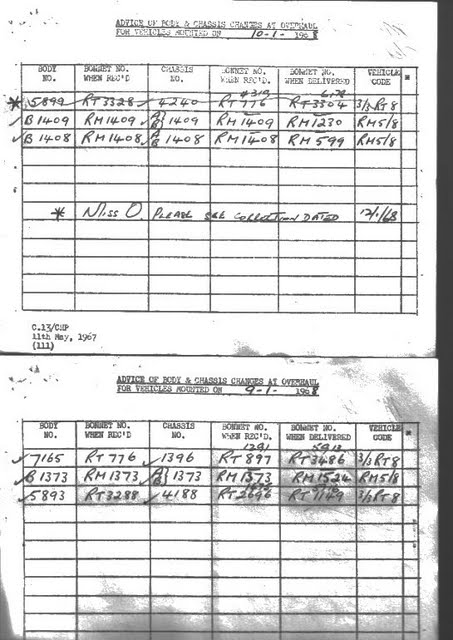 ADVICE OF BODY & CHASSIS CHANGES AT OVERHAUL
FOR VEHICLES MOUNTED ON 10-1- 1968
BODY NO. BONNET NO. WHEN REC'D CHASSIS NO. BONNET NO. WHEN REC'D. BONNET NO. WHEN DELIVERED VEHICLE CODE *
4319
* 5899 RT 3328 4240 RT 776 RT 3304 3/3 RT 8
✓ B1409 RM 1409 ✓ A} B} 1409 RM 1409 RM 1230 RM5/8
✓ B 1408 RM 1408 ✓ A B 1408 RM 1408 RM 599 RM5/8
* Miss O. PLEASE SEE CORRECTION DATED 12/1/68
C.13/CHP
11th May, 1967
(111)
ADVICE OF BODY & CHASSIS CHANGES AT OVERHAUL
FOR VEHICLES MOUNTED ON 9-1- 1968
BODY NO. BONNET NO. WHEN REC'D. CHASSIS NO. BONNET NO. WHEN REC'D. BONNET NO. WHEN DELIVERED VEHICLE CODE *
1291
✓ 7165 RT 776 ✓ 1396 RT 897 RT 3486 3/3 RT 8
✓ B 1373 RM 1373 ✓ A} B} 1373 RM 1373 RM 1524 RM5/8
✓ 5893 RT 3288 ✓ 4188 RT 2696 RT 1149 3/3 RT 8